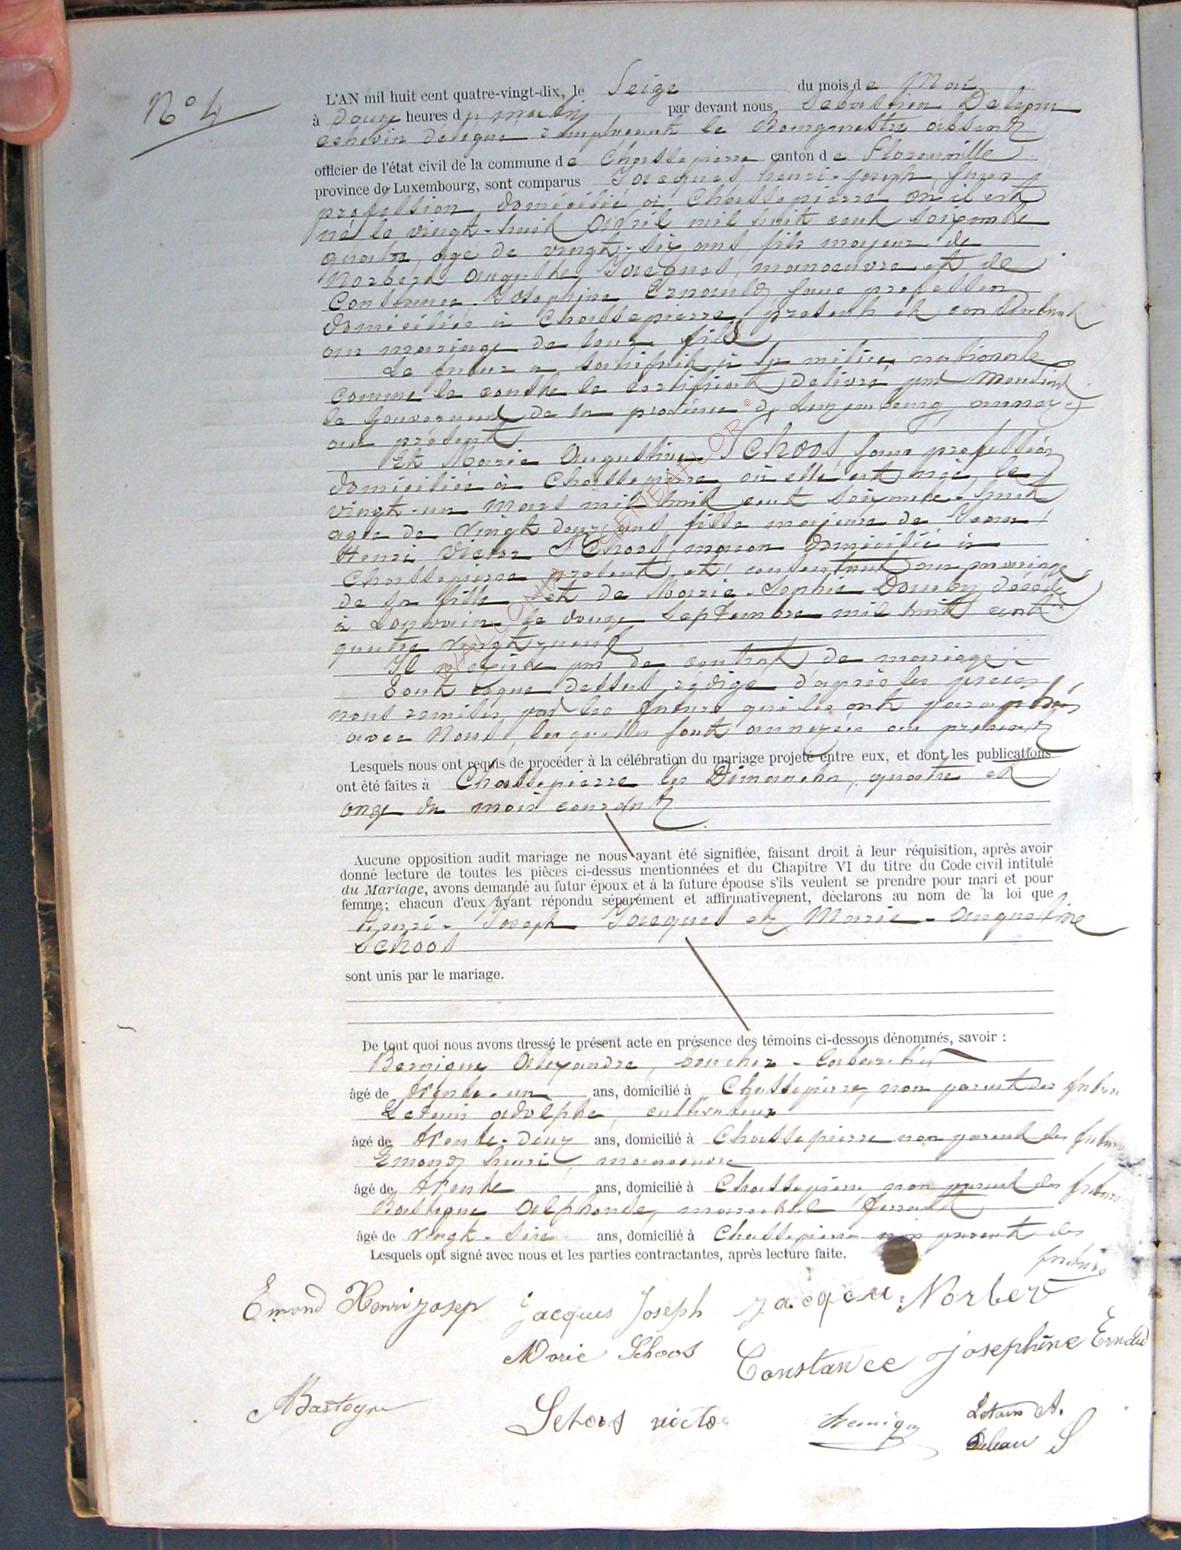 N° 4
L'AN mil huit cent quatre-vingt-dix, le Seize du mois de Mai
à Douze heures du matin par devant nous Sébastien
échevin délégué remplaçant le Bourgmestre absent
officier de l'état civil de la commune de Chassepierre canton de Florenville
province de Luxembourg, sont comparus Jacques henri-joseph sans
profession domicilié à Chassepierre où il est
né le vingt-huit Avril mil huit cent soixante
quatre agé de vingt-six ans fils majeur de
Norbert Auguste Jacques, manoeuvre et de
Constance Josephine Ernould sans profession
domiciliés à Chassepierre présents et consentant
au mariage de leur fils
Le futur a satisfait à la milice nationale
comme le constate le certificat délivré par Monsieur
le Gouverneur de la province de Luxembourg annexé
au présent
Et Marie Augustine SCHOOS sans profession
domiciliée à Chassepierre où elle est née le
vingt-un Mars mil huit cent soixante-huit
agée de vingt deux ans fille majeure de Jean
Henri Victor Schoos, maçon domicilié à
Chassepierre présent et consentant au mariage
de sa fille et de Marie-Sophie décédée
à Louvain le douze Septembre mil huit cent
quatre vingt-neuf
Il n'existe pas de contrat de mariage
Tout ce que dessus rédigé d'après les pièces
nous remises par les futurs qui les ont paraphées
avec Nous, lesquelles sont annexées au présent
Lesquels nous ont requis de procéder à la célébration du mariage projeté entre eux, et dont les publications
ont été faites à Chassepierre les Dimanches, quatre et
onze du mois courant
Aucune opposition audit mariage ne nous ayant été signifiée, faisant droit à leur réquisition, après avoir
donné lecture de toutes les pièces ci-dessus mentionnées et du Chapitre VI du titre du Code civil intitulé
du Mariage, avons demandé au futur époux et à la future épouse s'ils veulent se prendre pour mari et pour
femme; chacun d'eux ayant répondu séparément et affirmativement, déclarons au nom de la loi que
Henri-Joseph Jacques et Marie-Augustine
SCHOOS
sont unis par le mariage.
De tout quoi nous avons dressé le présent acte en présence des témoins ci-dessous dénommés, savoir :
Alexandre, boucher-cabaretier
âgé de trente-un ans, domicilié à Chassepierre non parent des futurs
Letawis Adolphe, cultivateur
âgé de trente-deux ans, domicilié à Chassepierre non parent des futurs
Emond henri, manoeuvre
âgé de trente ans, domicilié à Chassepierre non parent des futurs
Alphonse, marechal ferrant
âgé de vingt-six ans, domicilié à Chassepierre non parent des
futurs
Lesquels ont signé avec nous et les parties contractantes, après lecture faite.
Emond Henri josep Jacques Joseph Jacques Norbert
Marie Schoos Constance josephine Ernould
Bastogne Schoos victor
Letawis A.